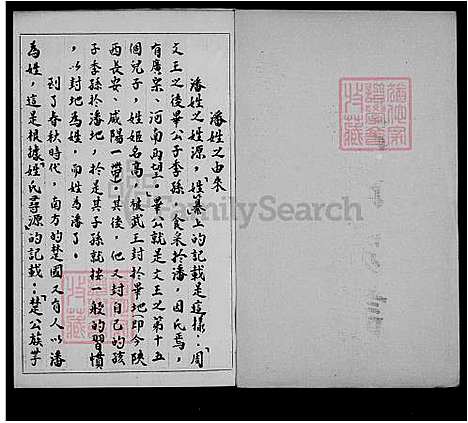 潘姓之由來
潘姓之姓源，「姓纂上」的記載是這樣：「周
文王之後畢公子季孫，食采於潘，因氏焉，
有廣宗、河南兩望。」畢公就是文王之第十五
個兒子，姓姬名高，被武王封於畢地即今陝
西長安、咸陽一帶。其後，他又封自己的孩
子季孫於潘地，於是其子孫就按一般的習慣
，以封地為姓，而姓為潘了。
到了春秋時代，南方的楚國又有人以潘
為姓，這是根據「姓氏尋源」的記載：「楚公族芈
FamilySearch